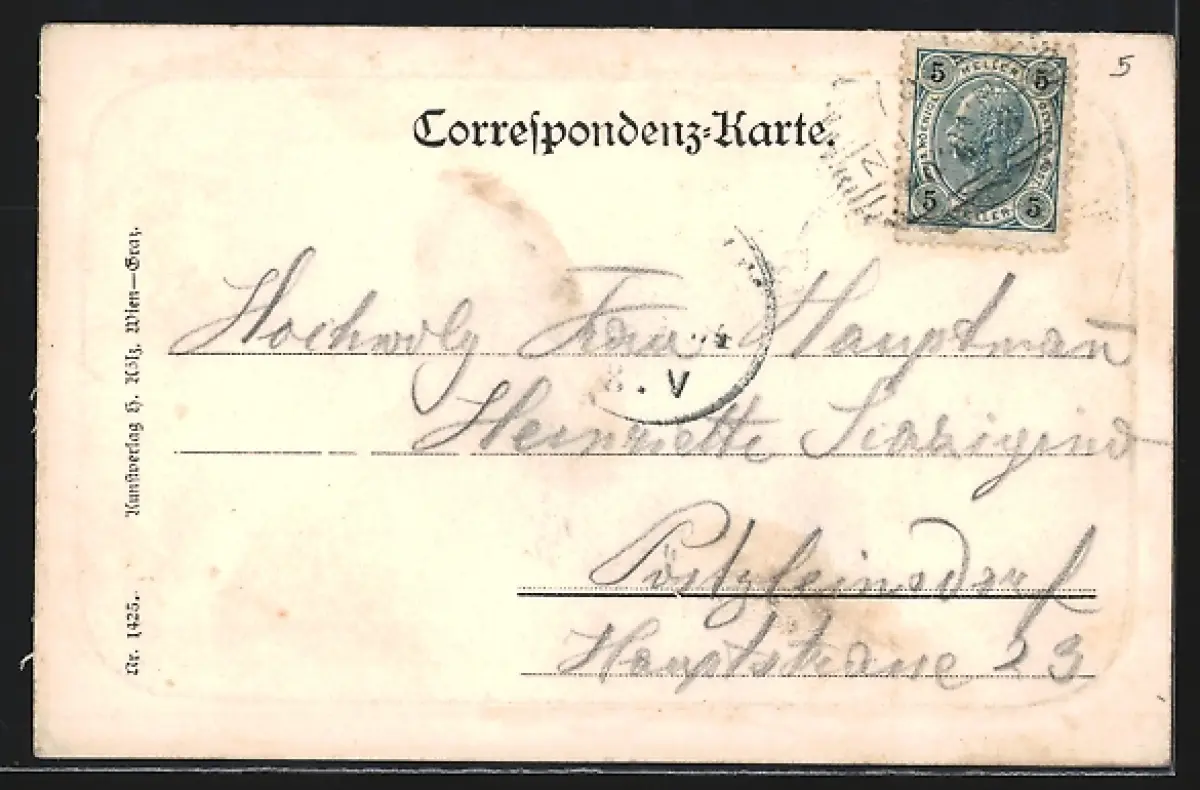 5
5 HELLER 5
5 HELLER 5
Correspondenz-Karte.
Hochwolg Frau Hauptman̄
Henriette
Pötzleinsdorf
Hauptstrasse 23
8. V
Nr. 1425. Kunstverlag H. Kölz, Wien—Graz.